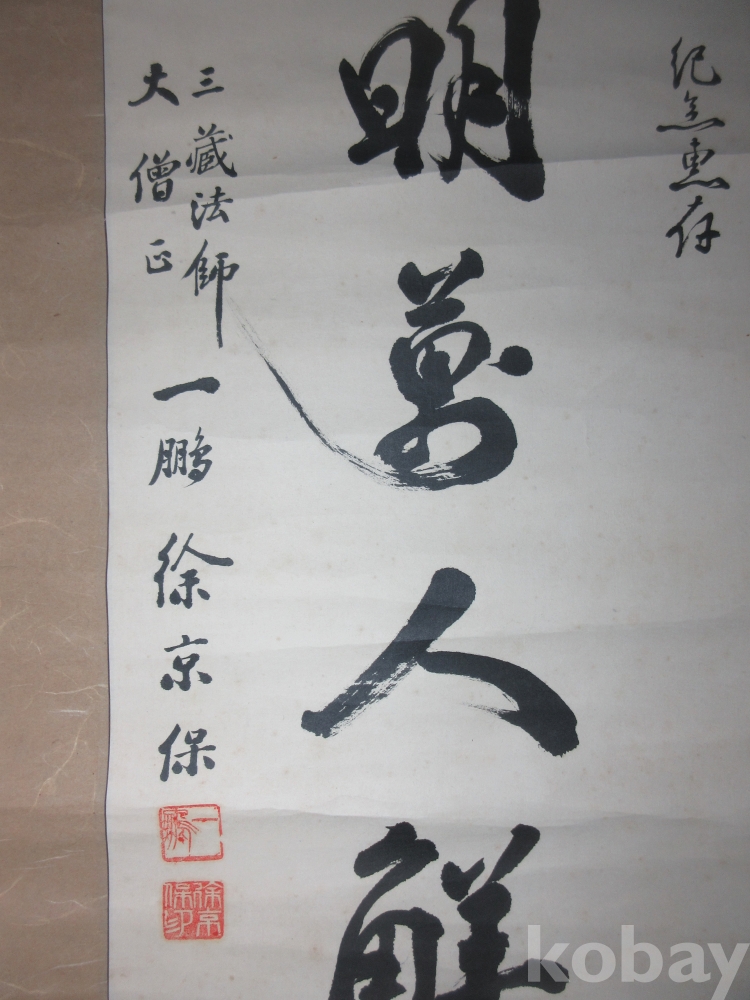 紀念惠存
明萬人鮮
三藏法師
大僧正
一鵬 徐京保
一鵬
徐京保印
kobay